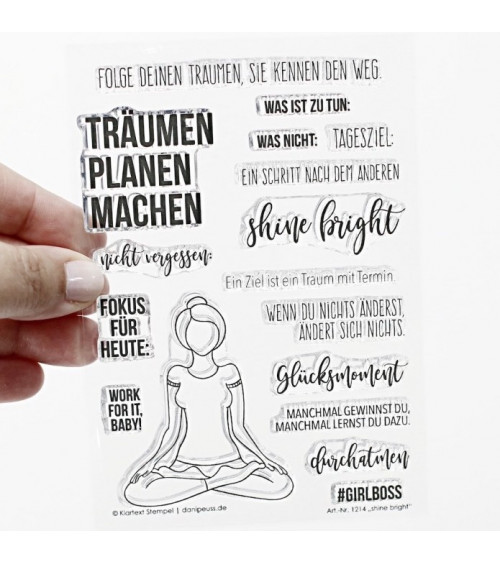 FOLGE DEINEN TRÄUMEN, SIE KENNEN DEN WEG.
TRÄUMEN
PLANEN
MACHEN
WAS IST ZU TUN:
WAS NICHT:
TAGESZIEL:
EIN SCHRITT NACH DEM ANDEREN
shine bright
nicht vergessen:
Ein Ziel ist ein Traum mit Termin.
FOKUS
FÜR
HEUTE:
WENN DU NICHTS ÄNDERST,
ÄNDERT SICH NICHTS.
Glücksmoment
WORK
FOR IT,
BABY!
MANCHMAL GEWINNST DU,
MANCHMAL LERNST DU DAZU.
durchatmen
#GIRLBOSS
© Klartext Stempel | danipeuss.de
Art.-Nr. 1214 „shine bright"